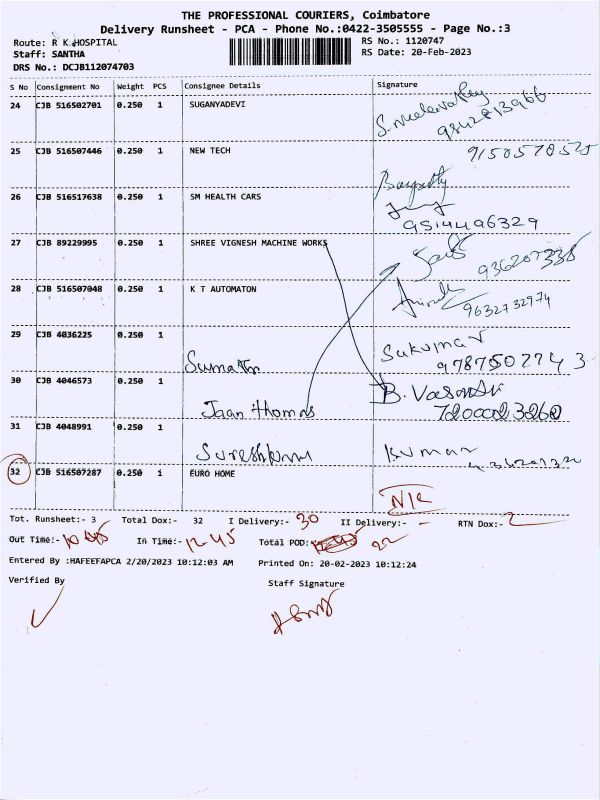 THE PROFESSIONAL COURIERS, Coimbatore
Delivery Runsheet - PCA - Phone No.:0422-3505555 - Page No.:3
Route: R K HOSPITAL
RS No.: 1120747
Staff: SANTHA
RS Date: 20-Feb-2023
DRS No.: DCJB112074703
S No Consignment No Weight PCS Consignee Details Signature
24 CJB 516502701 0.250 1 SUGANYADEVI
9842813966
25 CJB 516507446 0.250 1 NEW TECH 9150570525
26 CJB 516517638 0.250 1 SM HEALTH CARS
9514496329
27 CJB 89229995 0.250 1 SHREE VIGNESH MACHINE WORKS
936207338
28 CJB 516507048 0.250 1 K T AUTOMATON
9632732974
29 CJB 4036225 0.250 1 Sukumar
9787502743
30 CJB 4046573 0.250 1 B. Vasanth
Jaan thomas
31 CJB 4048991 0.250 1
Sureshkumar Kumar
32 CJB 516507287 0.250 1 EURO HOME
N/C
Tot. Runsheet:- 3 Total Dox:- 32 I Delivery:- 30 II Delivery:- - RTN Dox:- 2
Out Time:- 10 45 In Time:- 12 45 Total POD: 22
Entered By :HAFEEFAPCA 2/20/2023 10:12:03 AM Printed On: 20-02-2023 10:12:24
Verified By Staff Signature